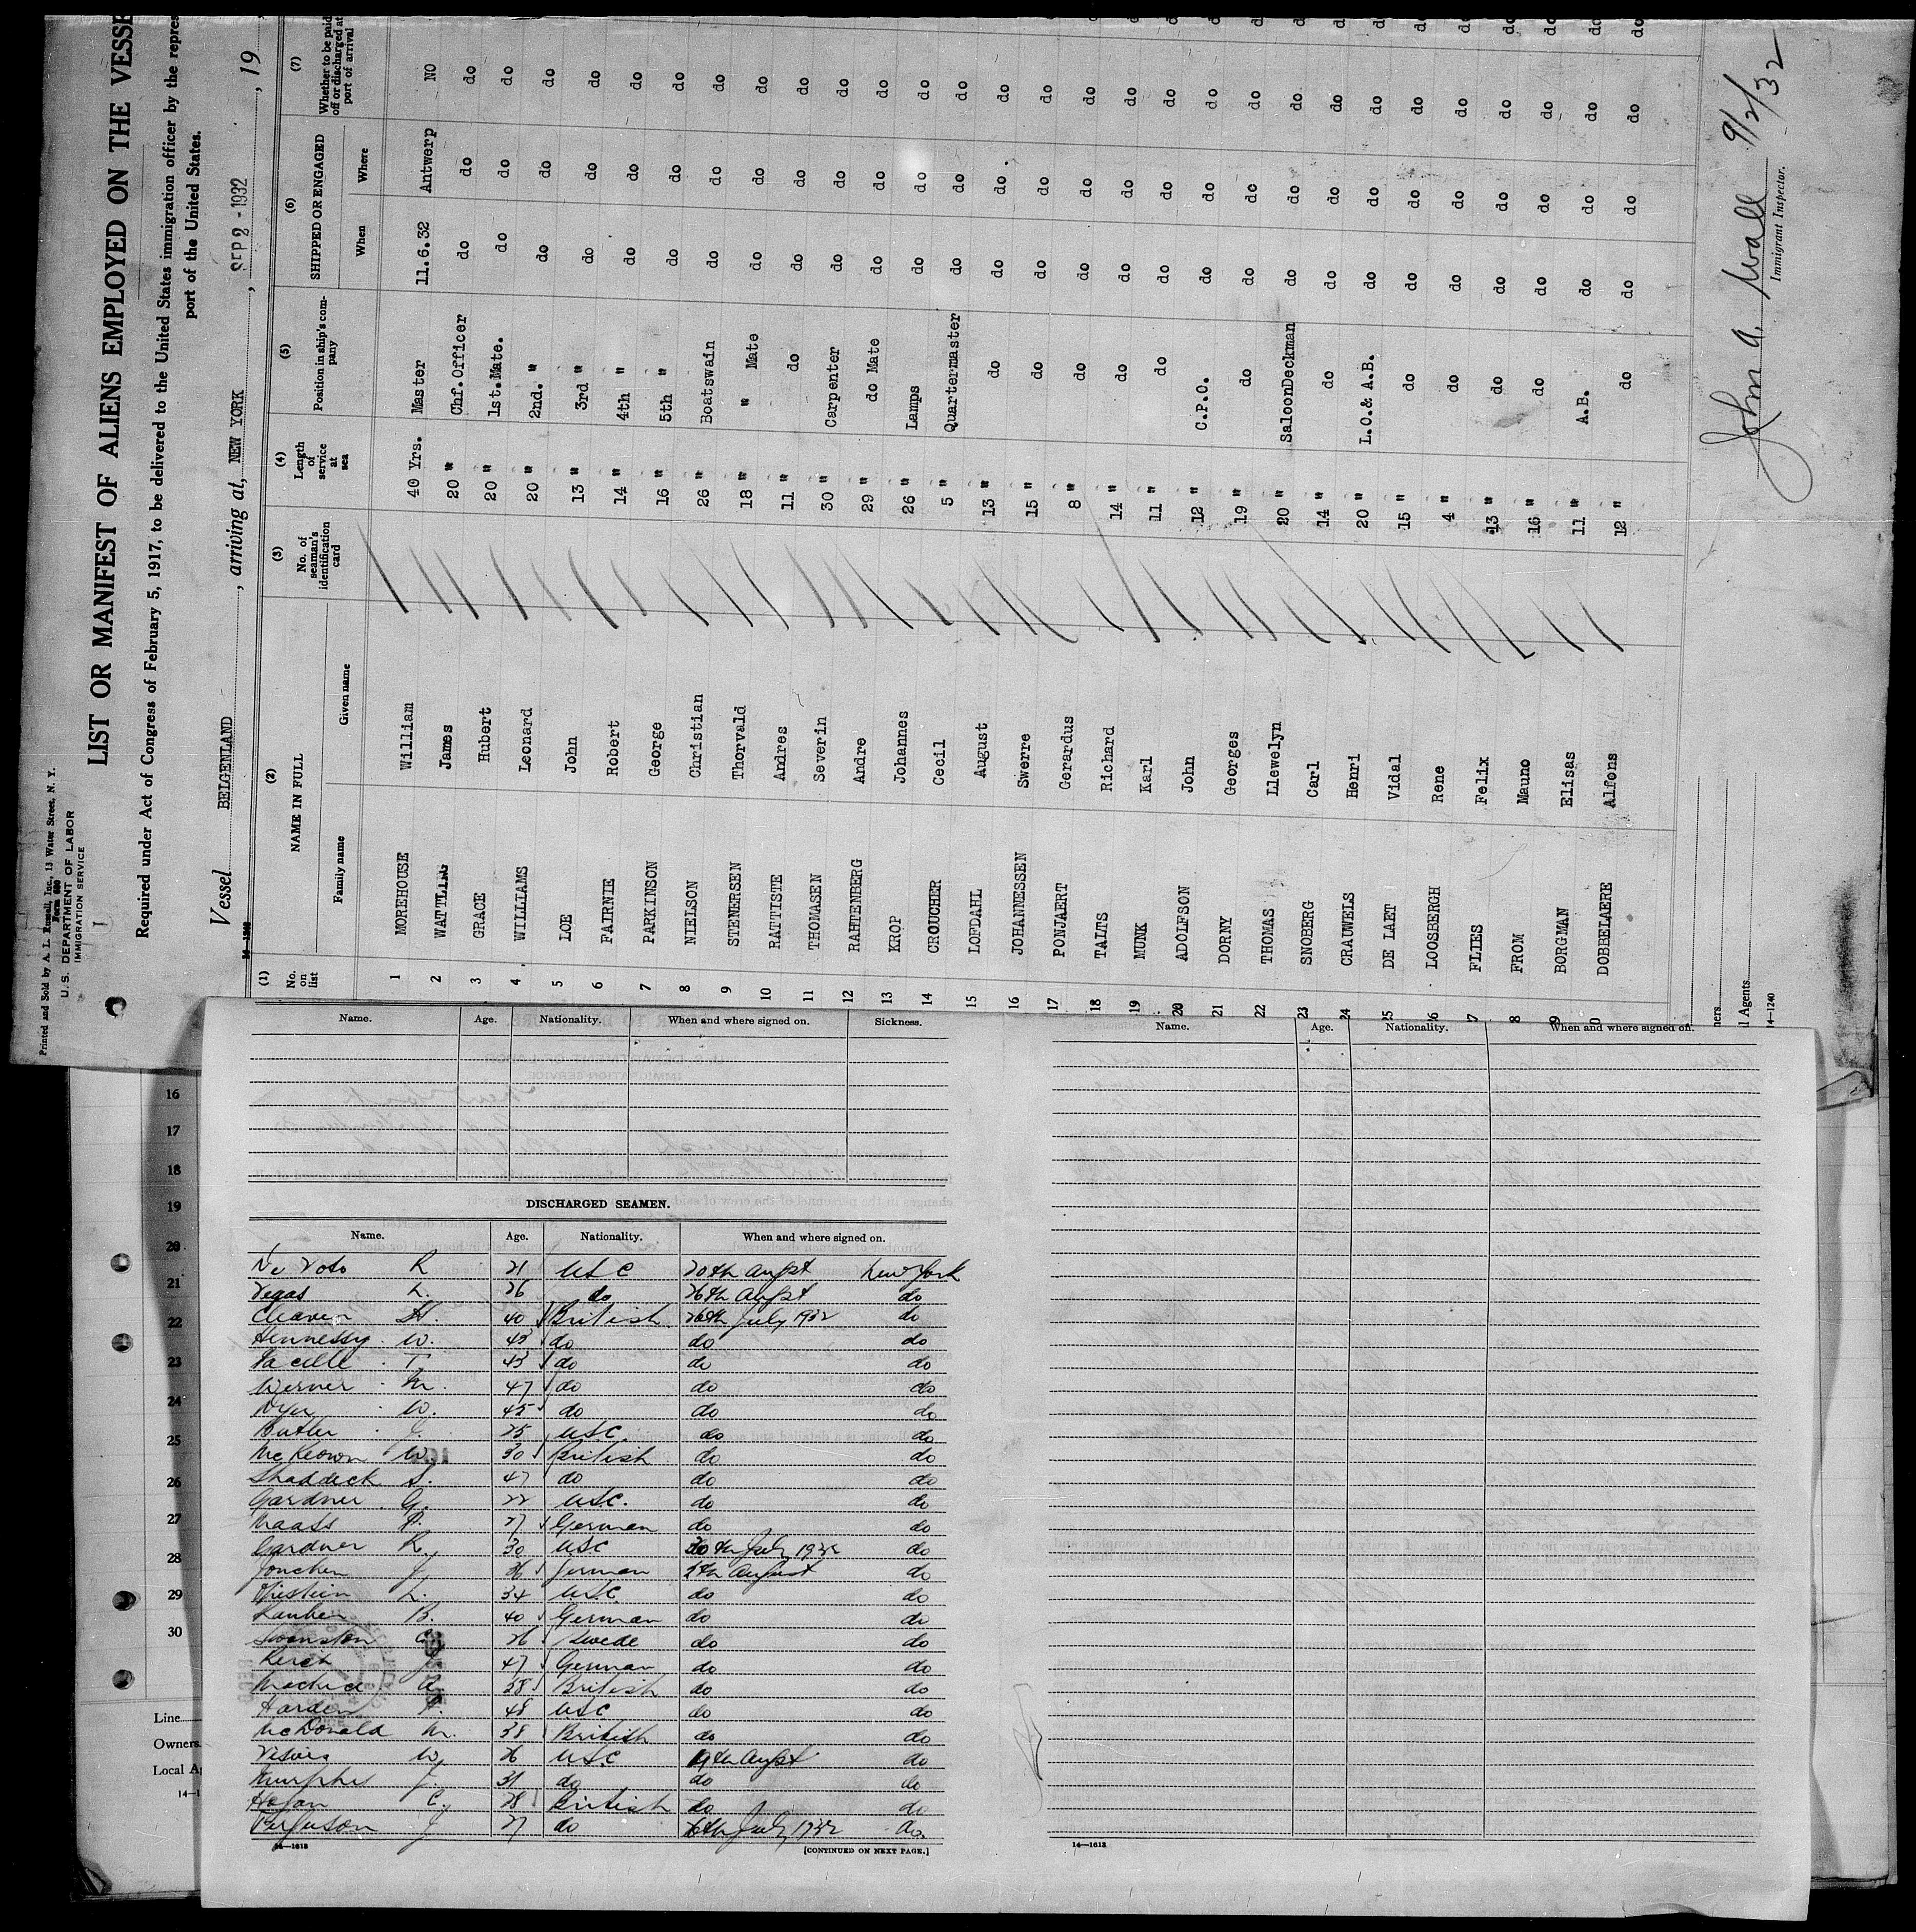 Printed and Sold by A. L. Russell, Inc., 13 Water Street, N. Y.
Form 680
U. S. DEPARTMENT OF LABOR
IMMIGRATION SERVICE
LIST OR MANIFEST OF ALIENS EMPLOYED ON THE VESSE
Required under Act of Congress of February 5, 1917, to be delivered to the United States immigration officer by the repres
port of the United States.
Vessel BELGENLAND, arriving at, NEW YORK, SEP 2 - 1932, 19
(1) (2) (3) (4) (5) (6) (7)
No. on list NAME IN FULL No. of seaman's identification card Length of service at sea Position in ship's company SHIPPED OR ENGAGED Whether to be paid off or discharged at port of arrival
Family name Given name When Where
1 MOREHOUSE William 40 Yrs. Master 11.6.32 Antwerp NO
2 James 20 " Chf.Officer do do do
3 GRACE Hubert 20 " 1st.Mate. do do do
4 WILLIAMS Leonard 20 " 2nd. " do do do
5 LOE John 13 " 3rd " do do do
6 FAIRNIE Robert 14 " 4th " do do do
7 PARKINSON George 16 " 5th " do do do
8 NIELSON Christian 26 " Boatswain do do do
9 STENERSEN Thorvald 18 " " Mate do do do
10 RATTISTE Andres 11 " do do do do
11 THOMASEN Severin 30 " Carpenter do do do
12 RAHTENBERG Andre 29 " do Mate do do do
13 KROP Johannes 26 " Lamps do do do
14 CROUCHER Cecil 5 " Quartermaster do do do
15 LOFDAHL August 13 " do do do do
16 JOHANNESSEN Swerre 15 " do do do do
17 PONJAERT Gerardus 8 " do do do do
18 TALTS Richard 14 " do do do do
19 MUNK Karl 11 " do do do do
20 ADOLFSON John 12 " C.P.O. do do do
21 DORNY Georges 19 " do do do do
22 THOMAS Llewelyn 20 " SaloonDeckman do do do
23 SNOBERG Carl 14 " do do do do
24 CRAUWELS Henri 20 " L.C.& A.B. do do do
25 DE LAET Vidal 15 " do do do do
26 LOOSBERGH Rene 4 " do do do do
7 FLIES Felix 13 " do do do do
8 FROM Mauno 16 " do do do do
9 BORGMAN Elisas 11 " A.B. do do do
0 DOBBELAERE Alfons 12 " do do do do
John A. Wall 9/2/32
Immigrant Inspector.
ners
l Agents
14—1240
Name. Age. Nationality. When and where signed on. Sickness.
Name. Age. Nationality. When and where signed on.
16
17
18
19
20
21
22
23
24
25
26
27
28
29
30
Line
Owners
Local A
14—1
DISCHARGED SEAMEN.
Name. Age. Nationality. When and where signed on.
De Voto R 21 USC 20th Augst New York
Vegas L. 26 do 26th Augst do
Cleaver H. 40 British 26th July 1932 do
Hennessy W. 43 do do do
T. 43 do do do
Werner M. 47 do do do
Dyer W. 45 do do do
Butler J. 25 USC. do do
McKeown W. 30 British do do
Shaddeck S. 47 do do do
Gardner G. 22 USC. do do
Maass P. 27 German do do
Gardner R. 30 USC 30th July 1932 do
Joncken J. 26 German 5th August do
Epstein L. 34 USC. do do
B. 40 German do do
Swanston 26 Swede do do
Kerch J. 47 German do do
A. 38 British do do
Harden 48 USC do do
McDonald M. 38 British do do
W. 26 USC 19th Augst do
Murphy J. 31 do do do
Hogan C. 28 British do do
Ferguson J 27 do 26th July 1932 do.
14—1613
[CONTINUED ON NEXT PAGE.]
14—1613